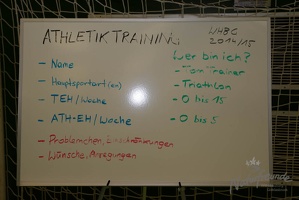 ATHLETIKTRAINING
WHBC
2014/15
Wer bin ich?
- Name
- Tom Trainer
- Hauptsportart(en)
- Triathlon
- TEH/Woche
- 0 bis 15
- ATH-EH/Woche
- 0 bis 5
- Problemchen, Einschränkungen
- Wünsche, Anregungen